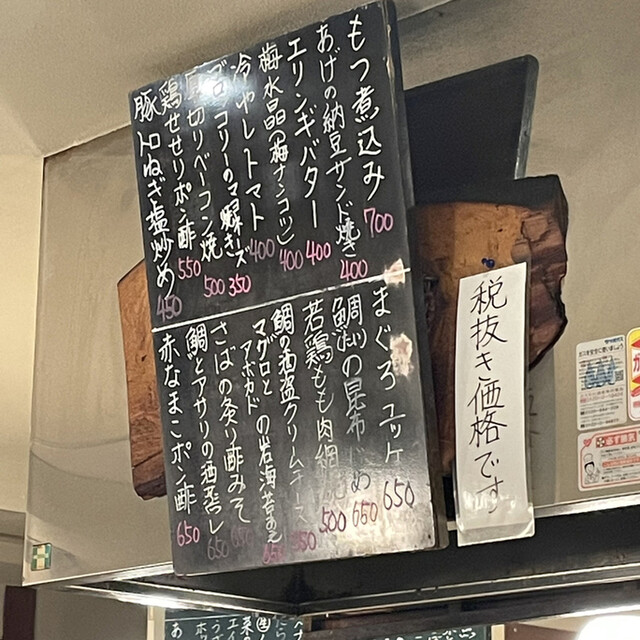 もつ煮込み 700
あげの納豆サンド焼き 400
エリンギバター 400
梅水晶(梅ナンコツ) 400
冷やしトマト 400
ブロッコリーの マヨネーズ 350
厚切りベーコン焼 500
鶏せせりポン酢 550
豚トロねぎ塩炒め 450
まぐろユッケ 650
鯛の昆布〆め 650
若鶏もも肉網焼 500
鯛の酒盗クリームチーズ 350
マグロとアボカドの岩海苔あえ 650
さばの炙り酢みそ 650
鯛とアサリの酒蒸し 650
赤なまこポン酢 650
税抜き価格です